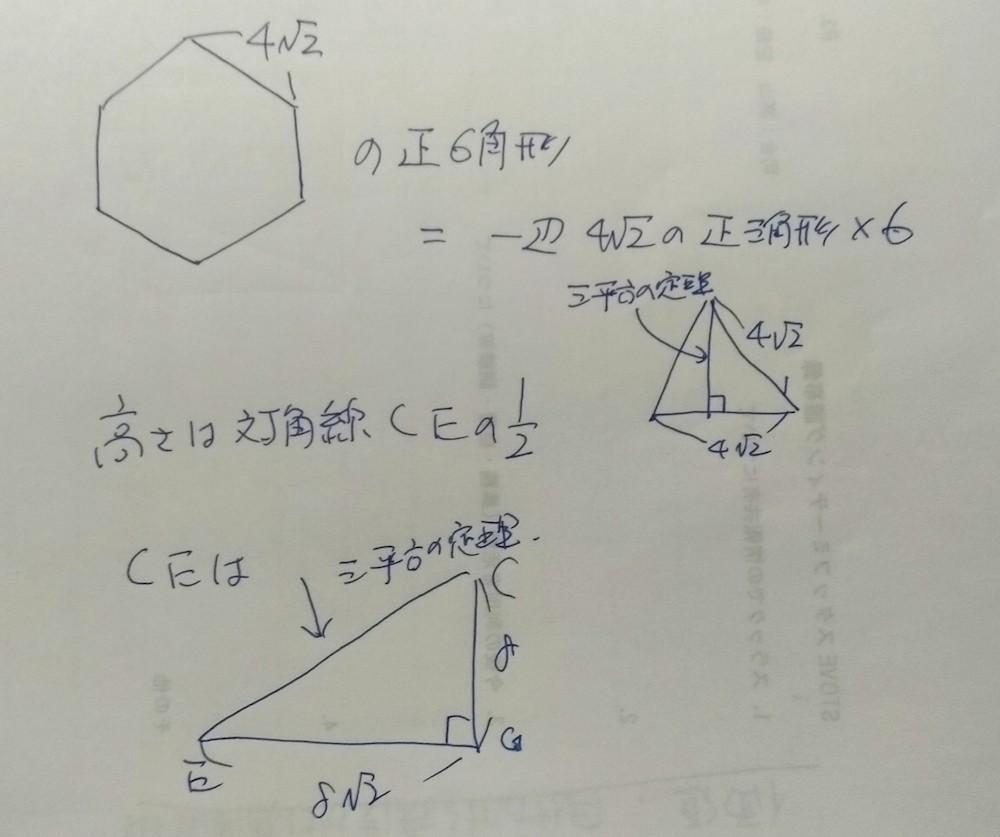 4√2
の正6角形
= 一辺 4√2の正三角形×6
三平方の定理
4√2
4√2
高さは対角線CEの1/2
CEは
三平方の定理.
C
8
E
G
8√2